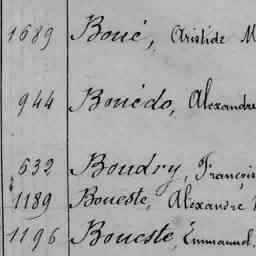 1689 Boué, Aristide M
944 Bouëdo, Alexandre
632 Boudry, François
1189 Boueste, Alexandre
1196 Boueste, Emmanuel,